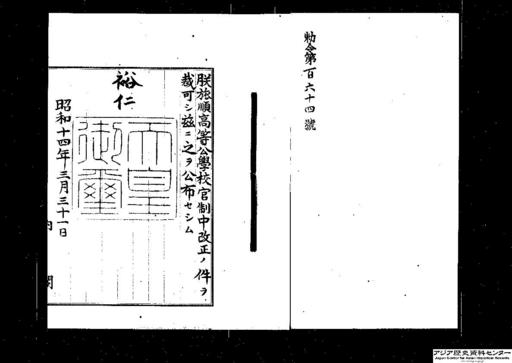 勅令第百六十四號
朕旅順高等公學校官制中改正ノ件ヲ
裁可シ茲ニ之ヲ公布セシム
裕仁
天皇
御璽
昭和十四年三月三十一日
内閣
アジア歴史資料センター
Japan Center for Asian Historical Records